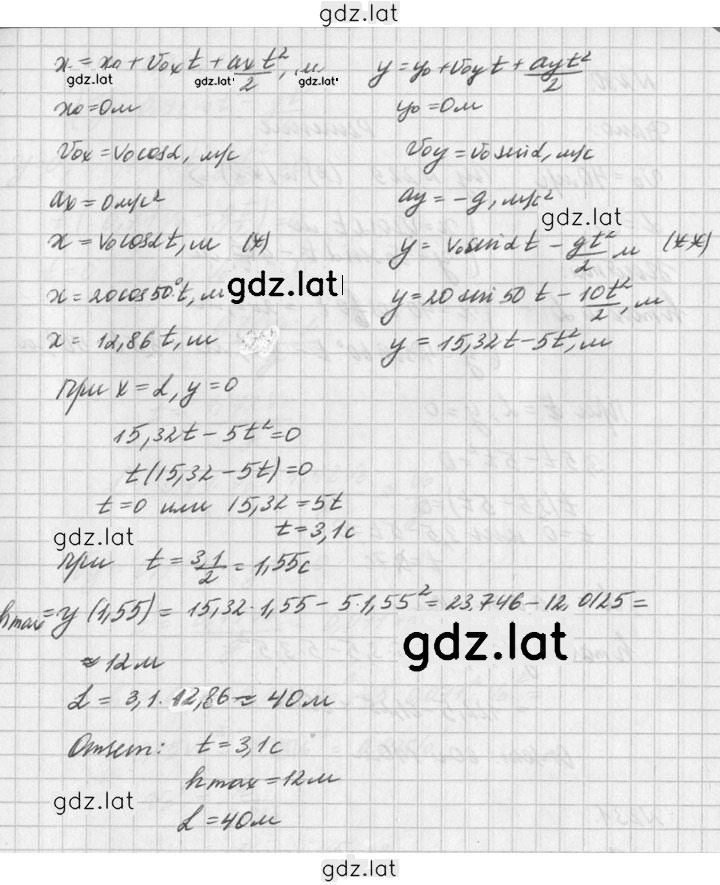 gdz.lat
x = x₀ + v₀ₓt + aₓt²/2, м
y = y₀ + v₀yt + ayt²/2
gdz.lat
gdz.lat
x₀ = 0 м
y₀ = 0 м
v₀ₓ = v₀cosα, м/с
v₀y = v₀sinα, м/с
aₓ = 0 м/с²
ay = -g, м/с²
gdz.lat
x = v₀cosαt, м (*)
y = v₀sinαt - gt²/2, м (**)
x = 20cos50°t, м
gdz.lat
y = 20 sin 50 t - 10t²/2, м
x = 12,86 t, м
y = 15,32t - 5t², м
при x = L, y = 0
15,32t - 5t² = 0
t(15,32 - 5t) = 0
t = 0 или 15,32 = 5t
t = 3,1 с
gdz.lat
при t = 3,1/2 = 1,55 с
hmax = y(1,55) = 15,32·1,55 - 5·1,55² = 23,746 - 12,0125 =
gdz.lat
≈ 12 м
L = 3,1·12,86 ≈ 40 м
Ответ: t = 3,1 с
hmax = 12 м
gdz.lat
L = 40 м
gdz.lat